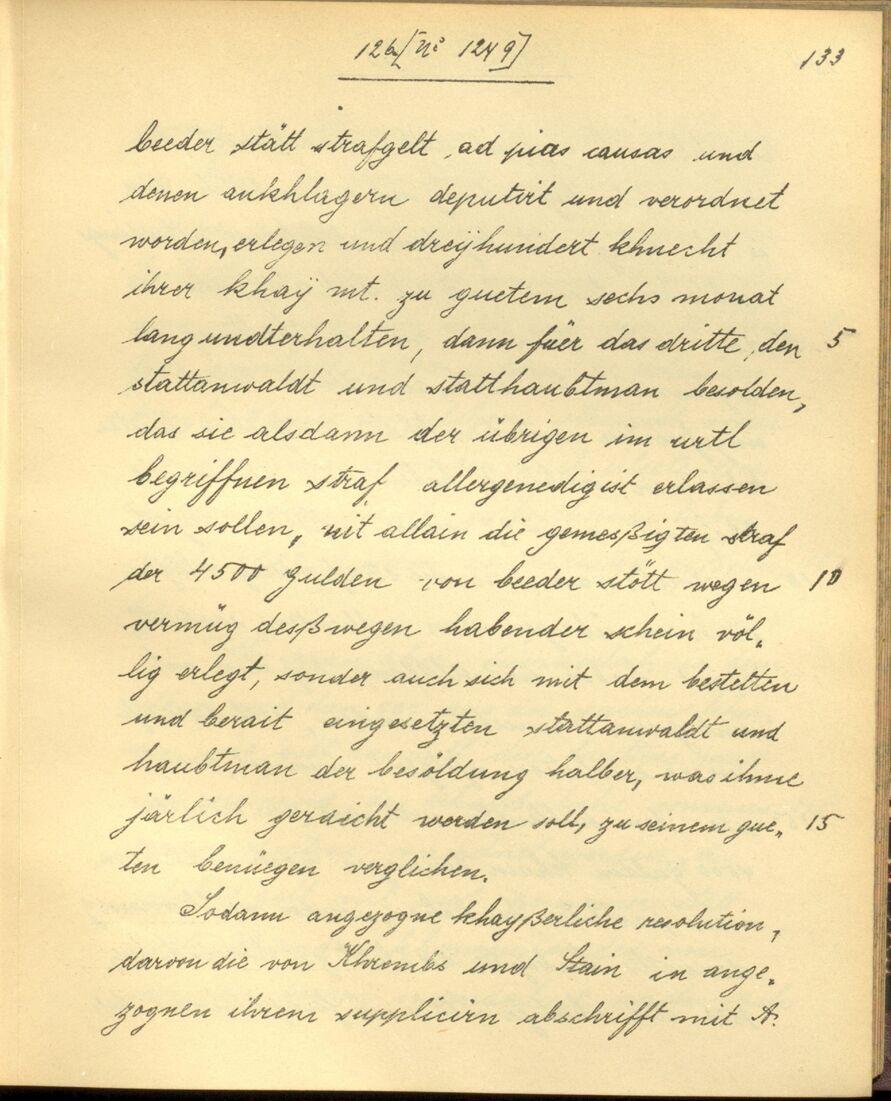 126[Nº 1249]
133
beeder stätt strafgelt, ad pias causas und
denen ankhlagern deputirt und verordnet
worden, erlegen und dreÿhundert khnecht
ihrer khaÿ mt. zu guetem sechs monat
lang undterhalten, dann füer das dritte, den 5
stattanwaldt und statthaubtman besolden,
das sie alsdann der übrigen im urtl
begriffnen straf allergenedigist erlassen
sein sollen, nit allain die gemesßigten straf
der 4500 gulden von beeder stött wegen 10
vermüg desßwegen habender schein völ„
lig erlegt, sonder auch sich mit dem bestelten
und berait eingesetzten stattanwaldt und
haubtman der besöldung halber, was ihme
järlich geraicht werden soll, zu seinem gue„ 15
ten benüegen verglichen.
Sodann angezogne khayßerliche resolution,
darvon die von Khrembs und Stain in ange„
zognen ihrem supplicirn abschrifft mit A: